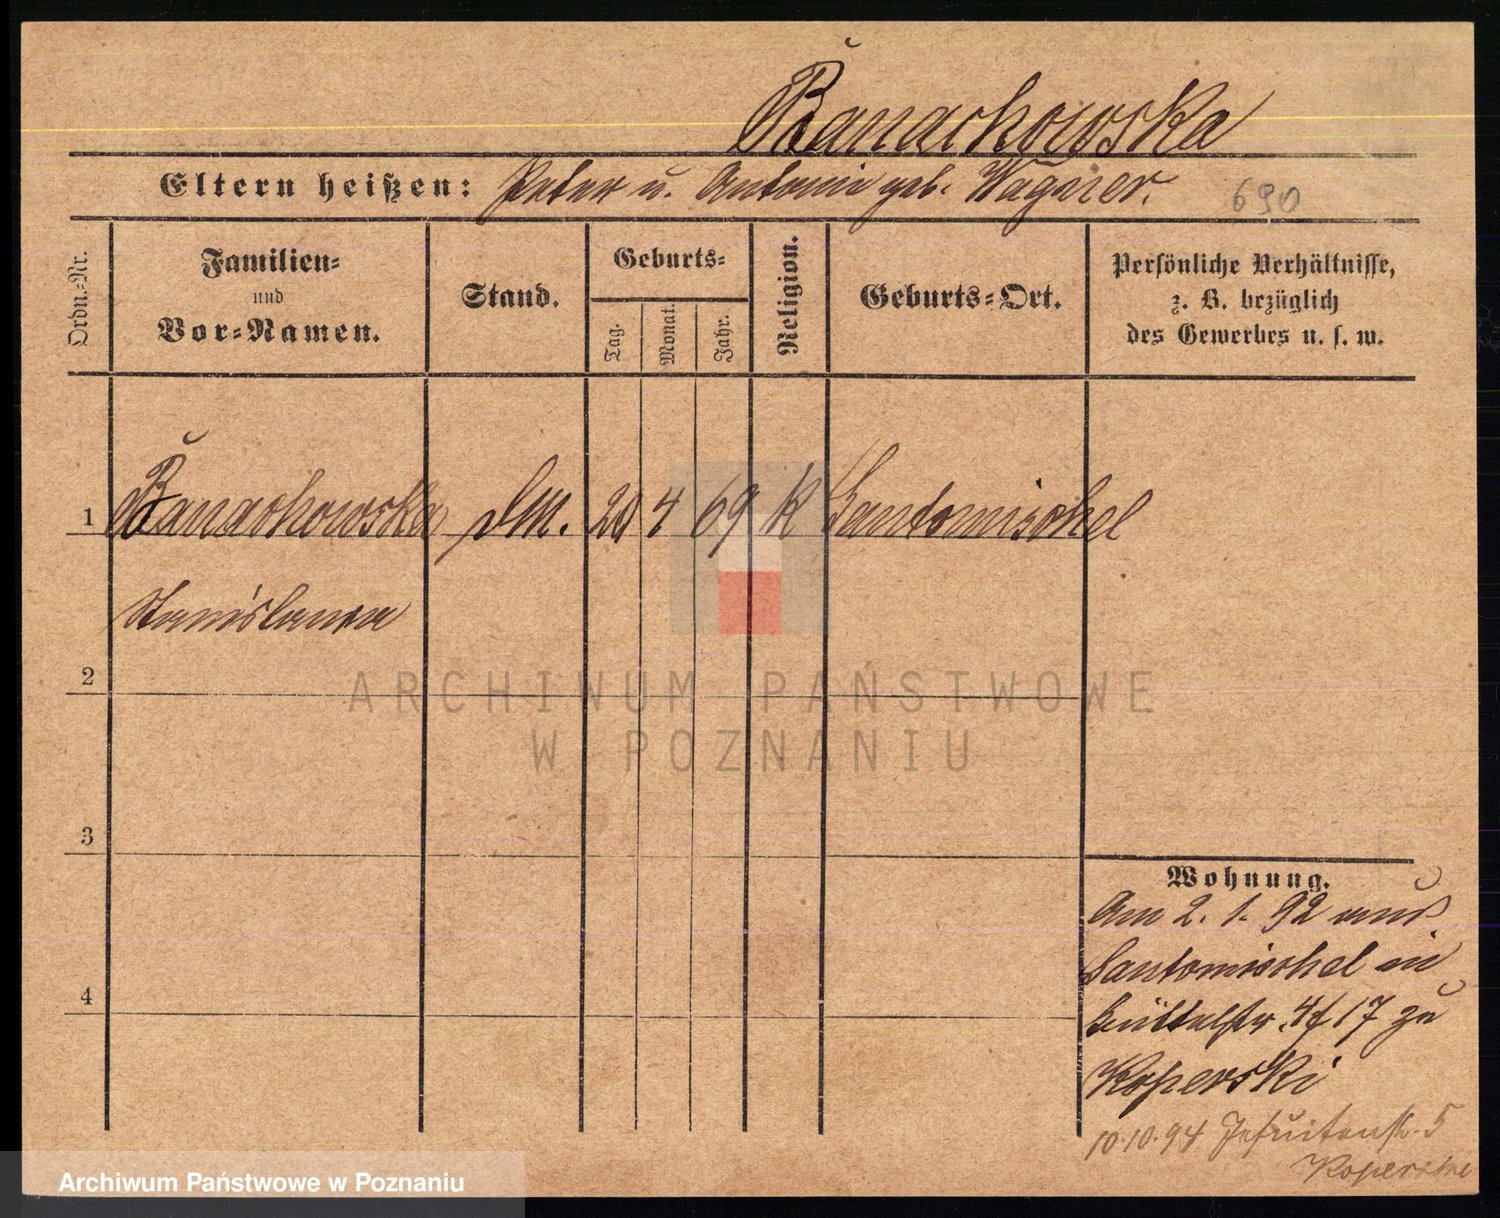 Banachowska
Eltern heißen: Peter u. Antonie geb. Wagner.
690
Ordn.-Nr.
Familien-
und
Vor-Namen.
Stand.
Geburts-
Tag.
Monat.
Jahr.
Religion.
Geburts-Ort.
Persönliche Verhältnisse,
z. B. bezüglich
des Gewerbes u. s. w.
1 Banachowska 4 69 K Santomischel
Stanislawa
2
ARCHIWUM PAŃSTWOWE
W POZNANIU
3
4
Wohnung.
Am 2. 1. 92 aus
Santomischel in
Büttelstr. 17 zu
Koperski
10.10.94 Jesuitenstr. 5
Archiwum Państwowe w Poznaniu